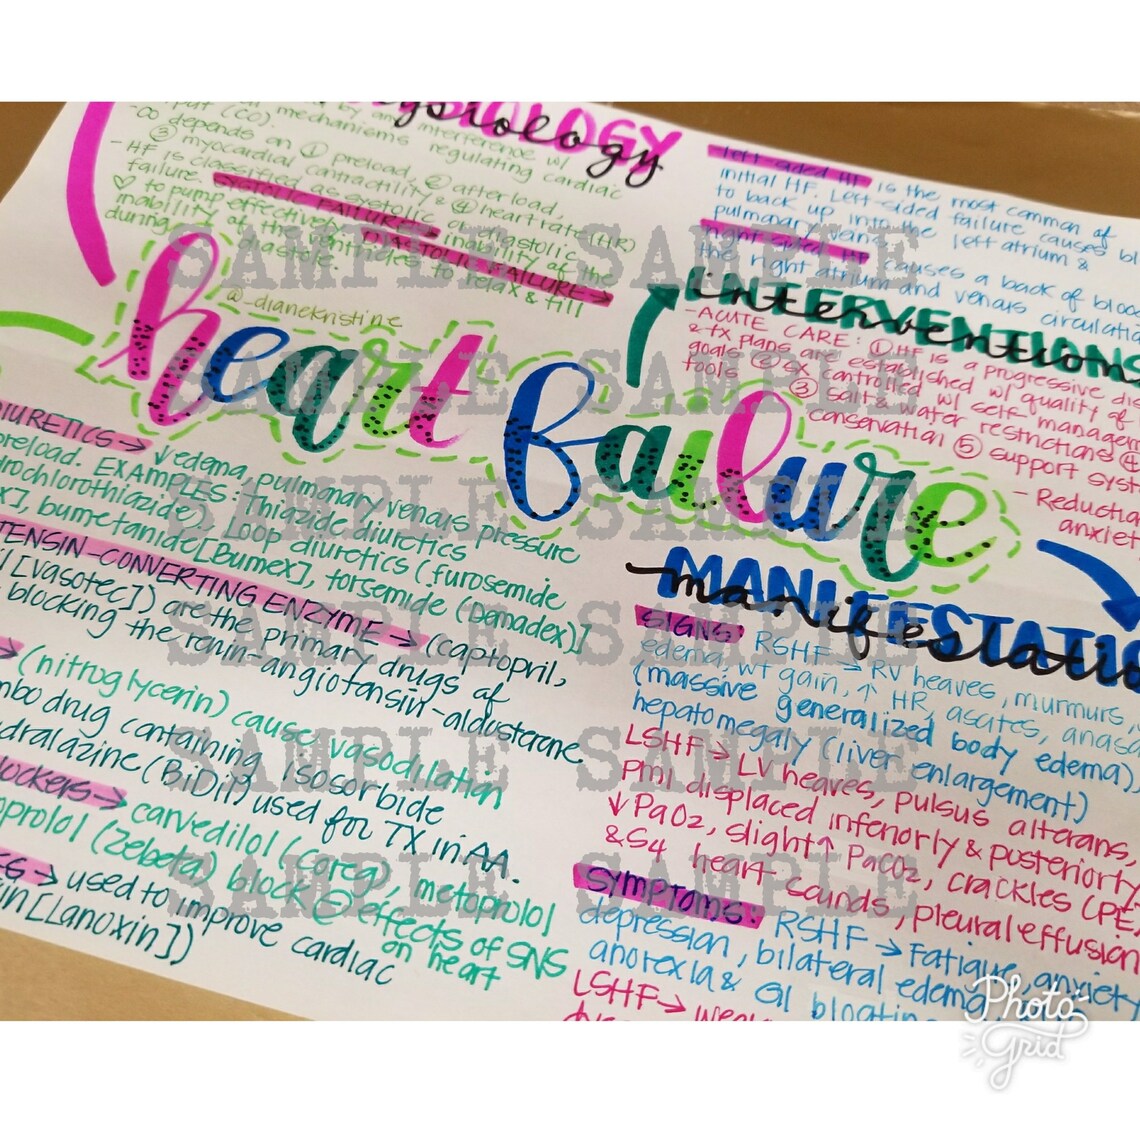 PHYSIOLOGY
physiology
put (CO).
mechanisms regulating cardiac
-CO depends on ① preload, ② afterload,
③ myocardial contractility & ④ heart rate (HR)
- HF is classified as systolic or diastolic
failure. SYSTOLIC FAILURE → inability of the
♡ to pump effectively. DIASTOLIC FAILURE →
inability of the ventricles to relax & fill
during diastole.
left-sided HF is the most common of
initial HF. Left-sided failure causes bl
to back up into the left atrium &
pulmonary veins.
right-sided HF causes a back of bloo
the right atrium and venous circulatio
@_dianekristine
heart failure
INTERVENTIONS
interventions
-ACUTE CARE: ① HF is a progressive dis
& tx plans are established w/ quality of
goals ② sx controlled w/ self managem
tools ③ salt & water restrictions ④
conservation ⑤ support syst
- Reductio
anxiet
DIURETICS → ↓ edema, pulmonary venous pressure
preload. EXAMPLES: Thiazide diuretics
drochlorothiazide), Loop diuretics (furosemide
x], bumetanide [Bumex], torsemide (Damadex)]
TENSIN-CONVERTING ENZYME → (captopril,
il [Vasotec]) are the primary drugs of
blocking the renin-angiotensin-aldosterone
→ (nitroglycerin) cause vasodilation
mbo drug containing isosorbide
dralazine (BiDil) used for TX in AA.
lockers → carvedilol (Coreg), metoprolol
oprolol (Zebeta) block ⊖ effects of SNS
on heart
ES → used to improve cardiac
xin [Lanoxin])
MANIFESTATIO
manifestatio
SIGNS: RSHF → RV heaves, murmurs,
edema, wt gain, ↑ HR, ascites, anasa
(massive generalized body edema),
hepatomegaly (liver enlargement)
LSHF → LV heaves, pulsus alterans,
PMI displaced inferiorly & posteriorly
↓ PaO2, slight ↑ PaCO2, crackles (PE
& S4 heart sounds, pleural effusion
SYMPTOMS: RSHF → Fatigue, anxiety
depression, bilateral edema,
anorexia & GI bloating
LSHF →
SAMPLE SAMPLE
SAMPLE SAMPLE
SAMPLE SAMPLE
SAMPLE SAMPLE
SAMPLE SAMPLE
SAMPLE SAMPLE
Photo
Grid